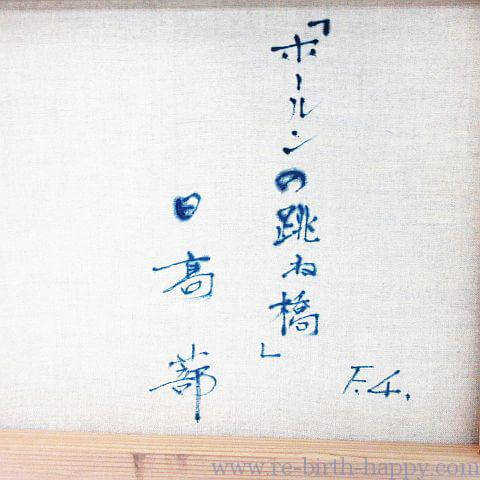 「ホールンの跳ね橋」
日高 蔀
F.4.
www.re-birth-happy.com